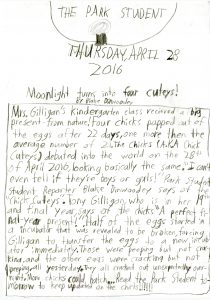 THE PARK STUDENT
THURSDAY, APRIL 28
2016
Moonlight turns into four cuteys!
By Blake Dinwoodey
Mrs. Gilligan's Kindergarten class received a big
present from nature! Four chicks popped out of
the eggs after 22 days, one more then the
average number of 21. The chicks (A.K.A Chick
Cuteys) debuted into the world on the 28th
of April 2016, looking basically the same. "I can't
even tell if they're boys or girls!" Park Student
Student Reporter Blake Dinwoodey says of the
Chick Cuteys. Tony Gilligan, who is in her 19th
and final year says of the chicks "A perfect
last year present". Half of the eggs started in
a incubator that was revealed to be broken, forcing
Gilligan to transfer the eggs to a new incuba-
tor immediately. Those were peeping but not crac-
king, and the other eggs were cracking but not
peeping, all yesterday. They all ended out unexpectedly
More chicks could hatch... Read the Park Student
tomorrow to keep updated on the chicks!!!